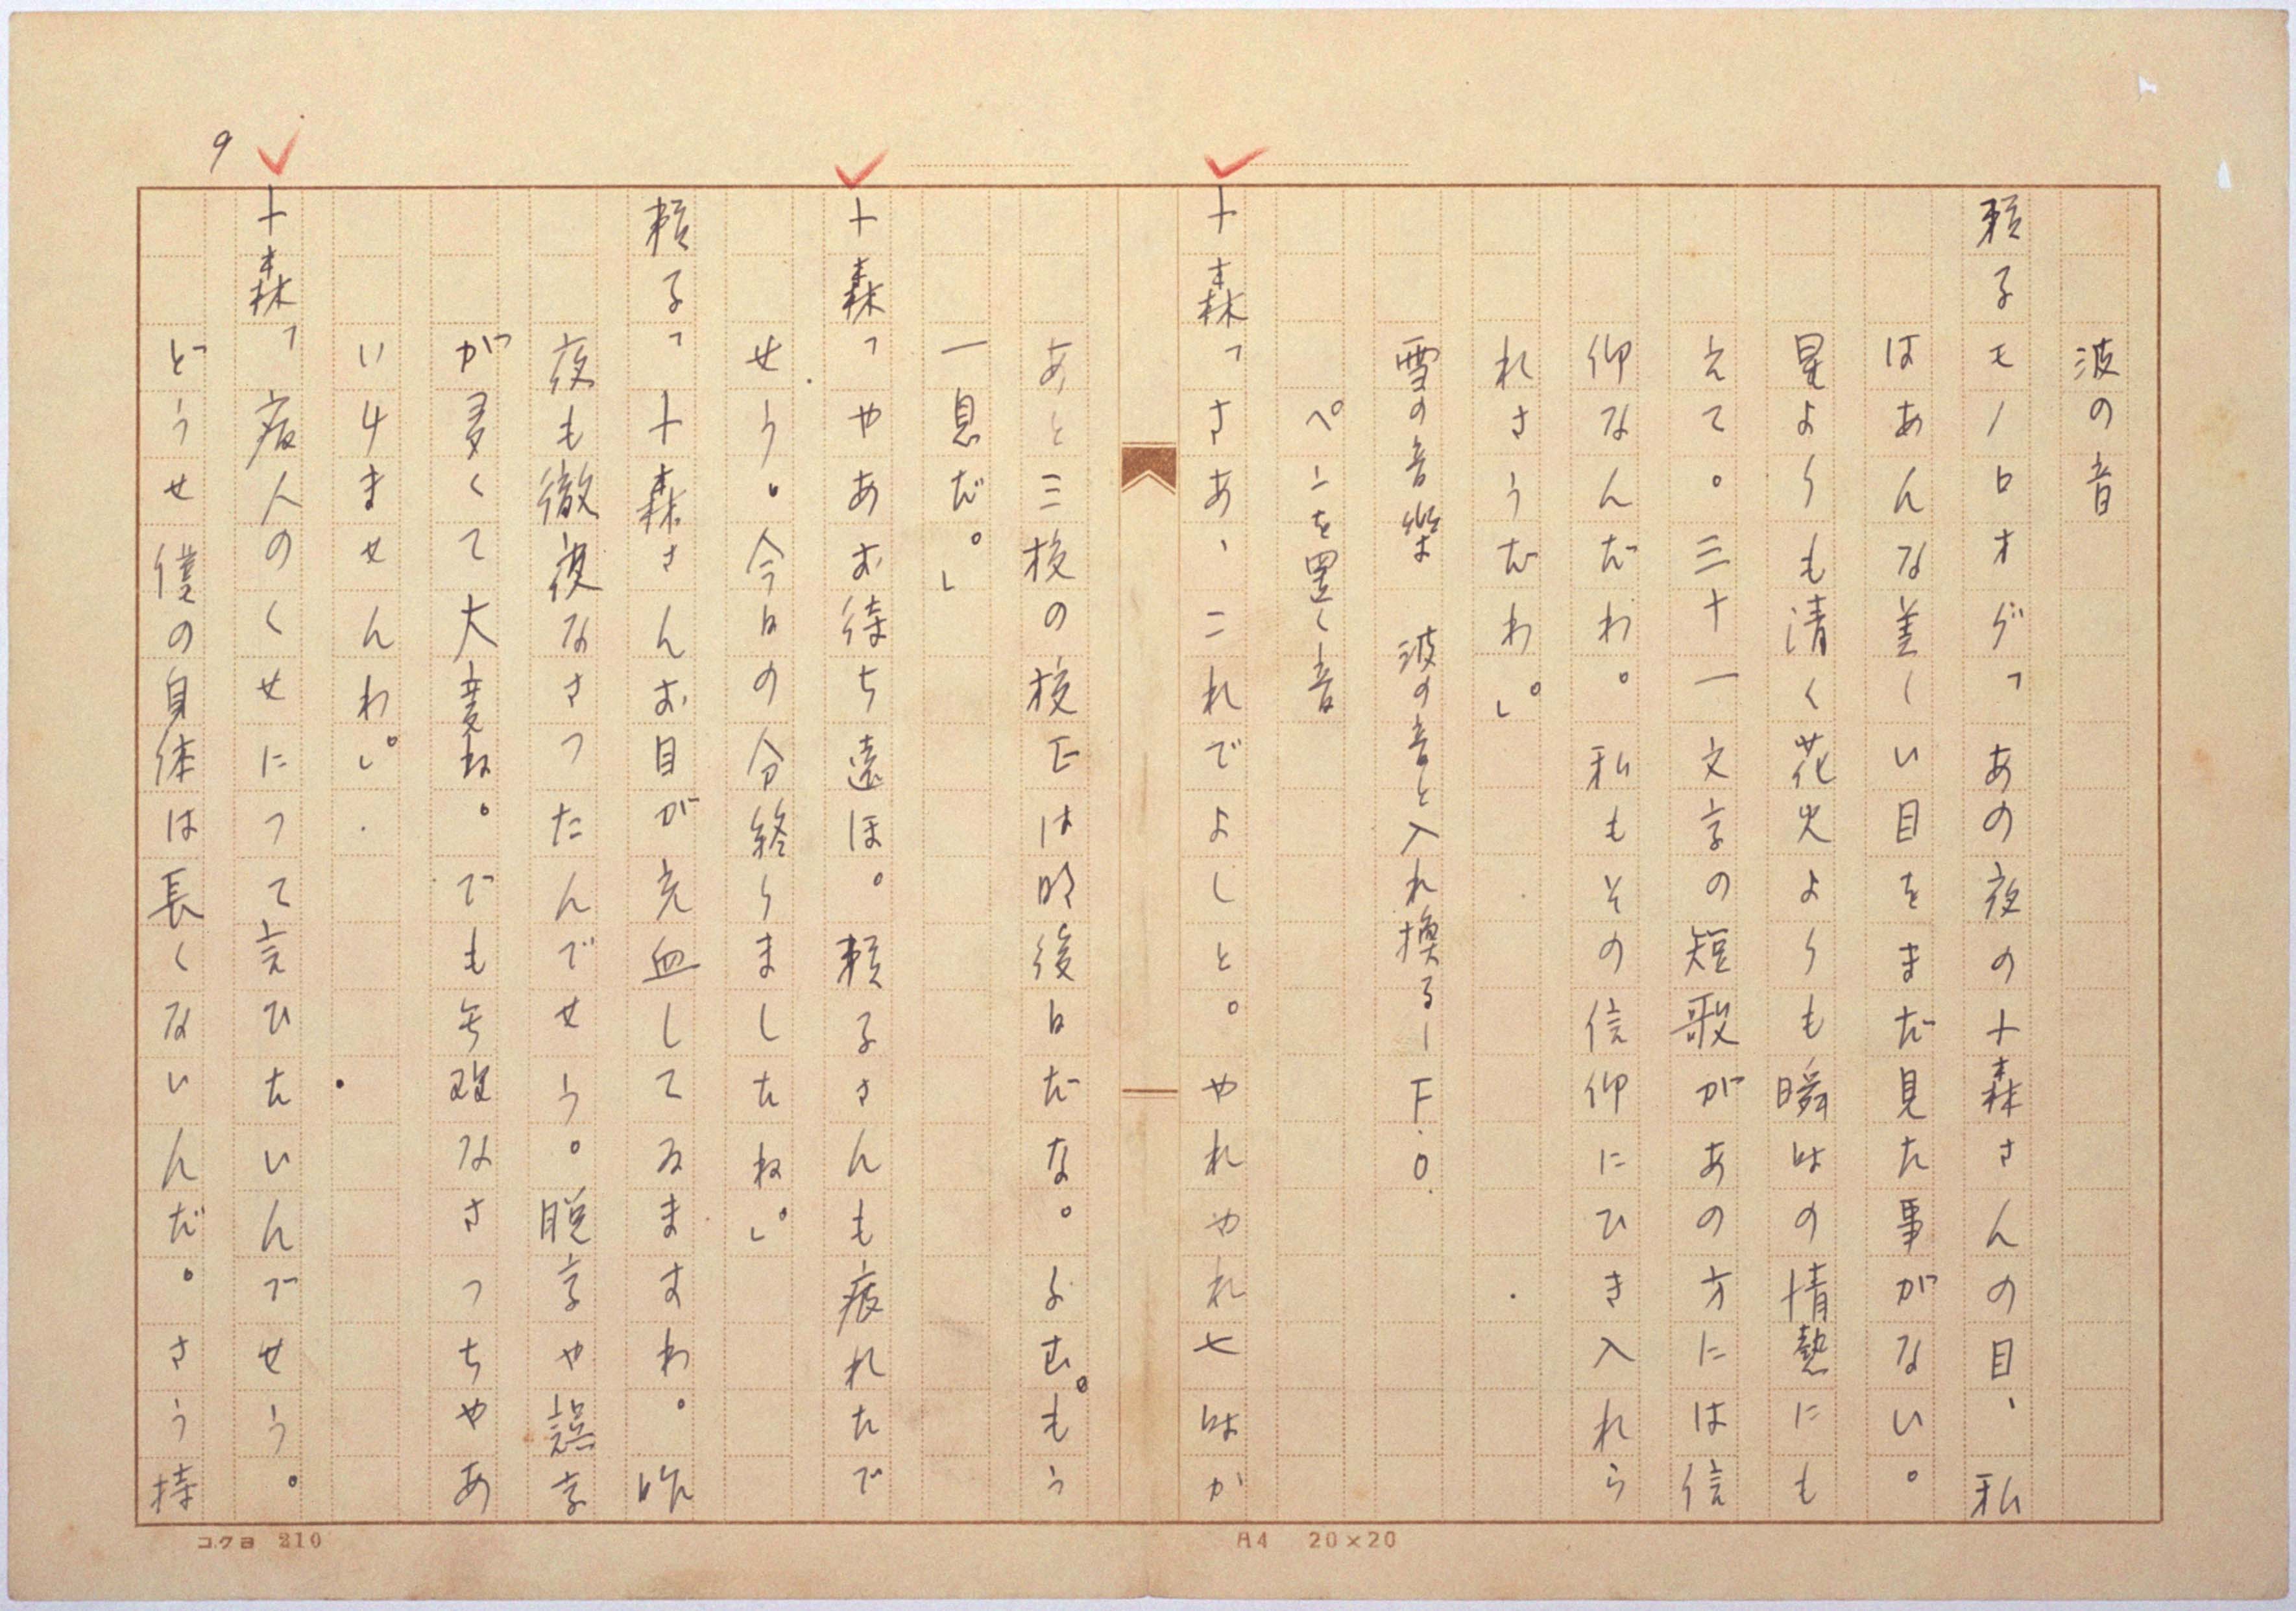 波の音
頼子モノロオグ「あの夜の小森さんの目、私
はあんな美しい目をまだ見た事がない。
星よりも清く花火よりも瞬時の情熱にも
えて。三十一文字の短歌があの方には信
仰なんだわ。私もその信仰にひき入れら
れさうだわ。」
雪の音樂 波の音と入れ換る―F.O.
ペンを置く音
小森「さあ、これでよしと。やれやれ七時か
あと三校の校正は明後日だな。よし。もう
一息だ。」
小森「やあお待ち遠ほ。頼子さんも疲れたで
せう。今日の分終りましたね。」
頼子「小森さんお目が充血してゐますわ。昨
夜も徹夜なさつたんでせう。脱字や誤字
が多くて大変ね。でも無理なさつちやあ
いけませんわ。」
小森「病人のくせにつて言ひたいんでせう。
どうせ僕の身体は長くないんだ。さう持
9
コクヨ 210
A4 20×20